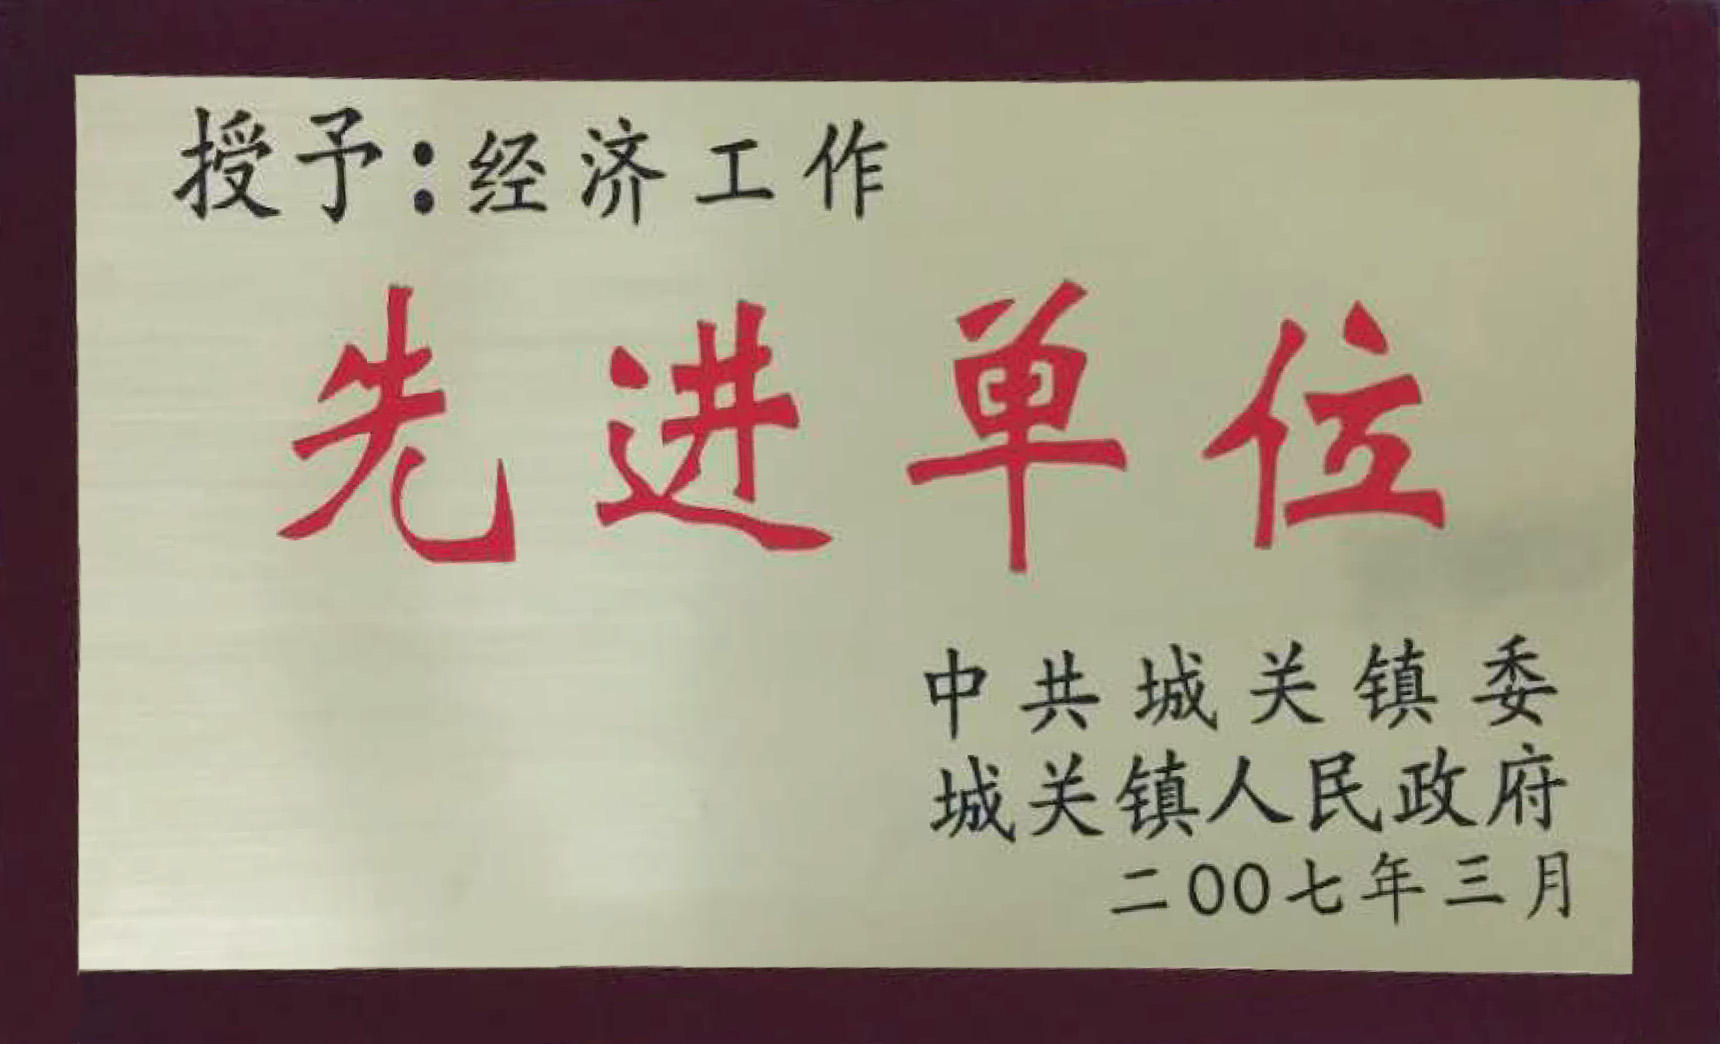 授予:经济工作
先进单位
中共城关镇委
城关镇人民政府
二00七年三月